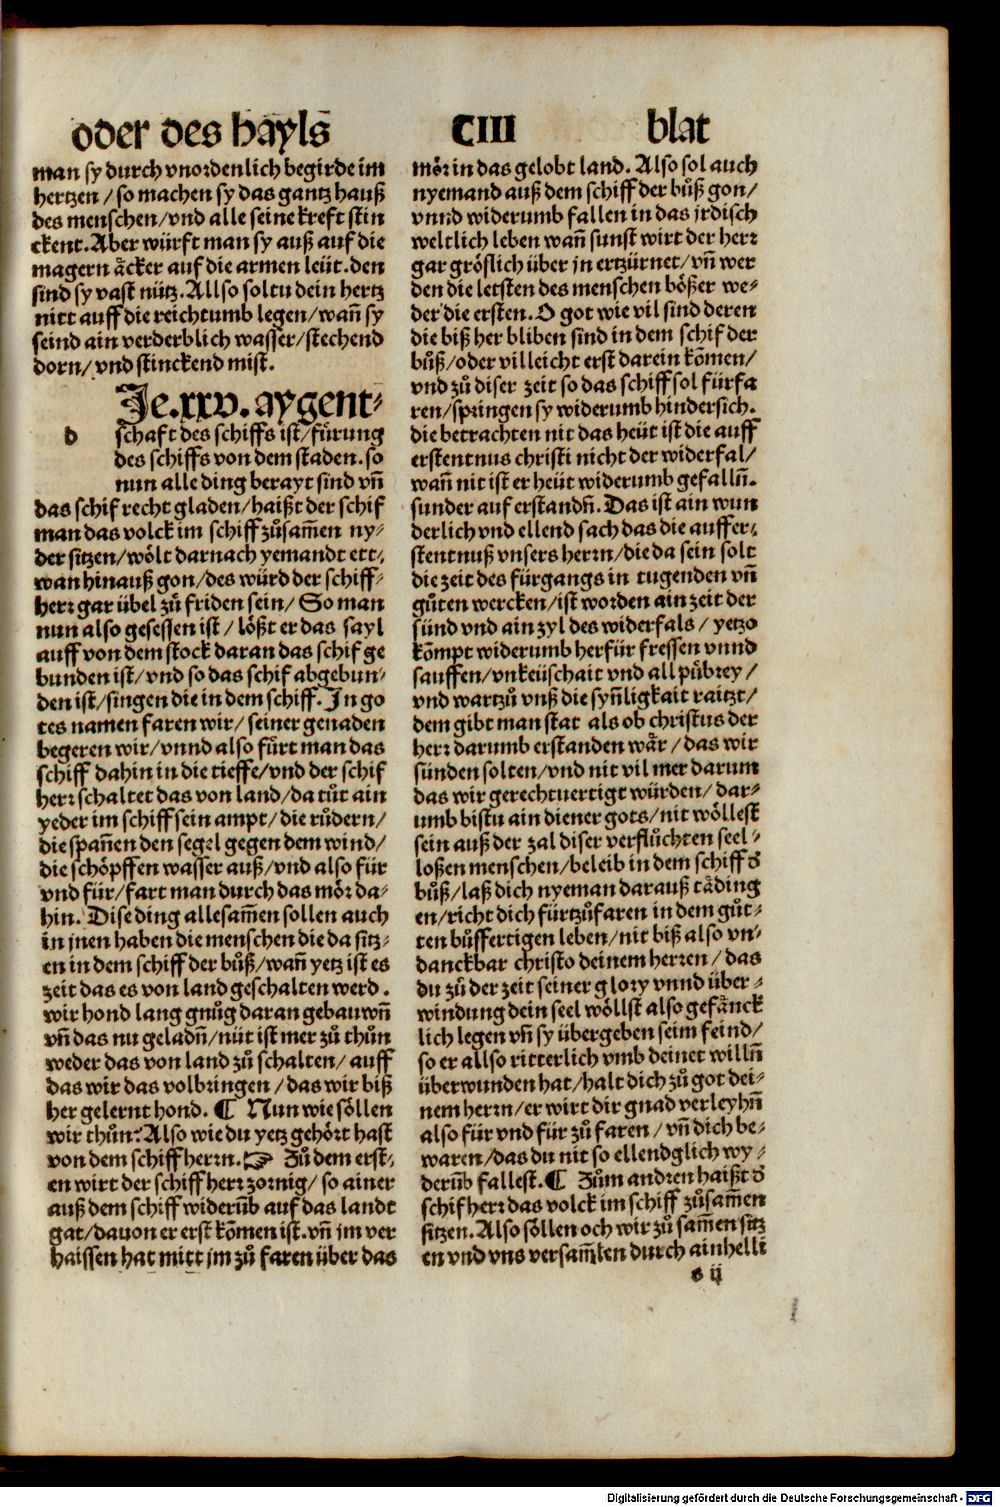 oder des hayls̄ CIII blat
man sy durch vnordenlich begirde im
hertzen / so machen sy das gantz hauß
des menschen / vnd alle seine kreft stin
ckent. Aber würft man sy auß auf die
magern aͤcker auf die armen leüt. den
sind sy vast nütz. Allso soltu dein hertz
nitt auff die reichtumb legen / wañ sy
seind ain verderblich wasser / stechend
dorn / vnd stinckend mist.
Je. xxv. aygent⸗
d schaft des schiffs ist / fuͤrung
des schiffs von dem staden. so
nun alle ding berayt sind vñ
das schif recht gladen / haißt der schif
man das volck im schiff zuͦsam̄en ny⸗
der sitzen / woͤlt darnach yemandt ett⸗
wan hinauß gon / des würd der schiff⸗
herr gar übel zuͦ friden sein / So man
nun also gesessen ist / loͤßt er das sayl
auff von dem stock daran das schif ge
bunden ist / vnd so das schif abgebun⸗
den ist / singen die in dem schiff. In go
tes namen faren wir / seiner genaden
begeren wir / vnnd also fuͤrt man das
schiff dahin in die tieffe / vnd der schif
herr schaltet das von land / da tuͦt ain
yeder im schiff sein ampt / die ruͦdern /
die spañen den segel gegen dem wind /
die schoͤpffen wasser auß / vnd also für
vnd für / fart man durch das moͤr da⸗
hin. Dise ding allesam̄en sollen auch
in jnen haben die menschen die da sitz⸗
en in dem schiff der buͦß / wañ yetz ist es
zeit das es von land geschalten werd.
wir hond lang gnuͦg daran gebauwñ
vñ das nu geladñ / nüt ist mer zuͦ thuͦn
weder das von land zuͦ schalten / auff
das wir das volbringen / das wir biß
her gelernt hond. ¶ Nun wie soͤllen
wir thuͦn? Also wie du yetz gehoͤrt hast
von dem schiff herrn. ☞ Zuͦ dem erst⸗
en wirt der schiff herr zornig / so ainer
auß dem schiff widerūb auf das landt
gat / dauon er erst kōmen ist. vñ im ver
haissen hat mitt jm zuͦ faren über das
moͤr in das gelobt land. Also sol auch
nyemand auß dem schiff der buͦß gon /
vnnd widerumb fallen in das jrdisch
weltlich leben wañ sunst wirt der herr
gar groͤslich über jn ertzürnet / vñ wer
den die letsten des menschen boͤßer we⸗
der die ersten. O got wie vil sind deren
die biß her bliben sind in dem schif der
buͦß / oder villeicht erst darein kōmen /
vnd zuͦ diser zeit so das schiff sol fürfa
ren / springen sy widerumb hindersich.
die betrachten nit das heüt ist die auff
erstentnus christi nicht der widerfal /
wañ nit ist er heüt widerumb gefallñ.
sunder auf erstandñ. Das ist ain wun
derlich vnd ellend sach das die auffer⸗
stentnuß vnsers herrn / die da sein solt
die zeit des fürgangs in tugenden vñ
guͦten wercken / ist worden ain zeit der
sünd vnd ain zyl des widerfals / yetzo
kōmpt widerumb herfür fressen vnnd
sauffen / vnkeüschait vnd all puͤbrey /
vnd wartzuͦ vnß die syñligkait raitzt /
dem gibt man stat als ob christus der
herr darumb erstanden waͤr / das wir
sünden solten / vnd nit vil mer darum
das wir gerechtuertigt würden / dar⸗
umb bistu ain diener gots / nit woͤllest
sein auß der zal diser verfluͦchten seel⸗
loßen menschen / beleib in dem schiff d̕
buͦß / laß dich nyeman darauß taͤding
en / richt dich fürtzuͦfaren in dem guͦt⸗
ten buͦssfertigen leben / nit biß also vn⸗
danckbar christo deinem herren / das
du zuͦ der zeit seiner glory vnnd über⸗
windung dein seel woͤllst also gefaͤnck
lich legen vñ sy übergeben seim feind /
so er allso ritterlich vmb deinet willñ
überwunden hat / halt dich zuͦ got dei⸗
nem herrn / er wirt dir gnad verleyhñ
also für vnd für zuͦ faren / vñ dich be⸗
waren / das du nit so ellendglich wy⸗
derūb fallest. ¶ Zuͦm andren haißt d̕
schif herr das volck im schiff zuͦsam̄en
sitzen. Also soͤllen och wir zuͦ sam̄en sitz
en vnd vns versam̄len durch ainhelli
s ij
Digitalisierung gefördert durch die Deutsche Forschungsgemeinschaft - DFG